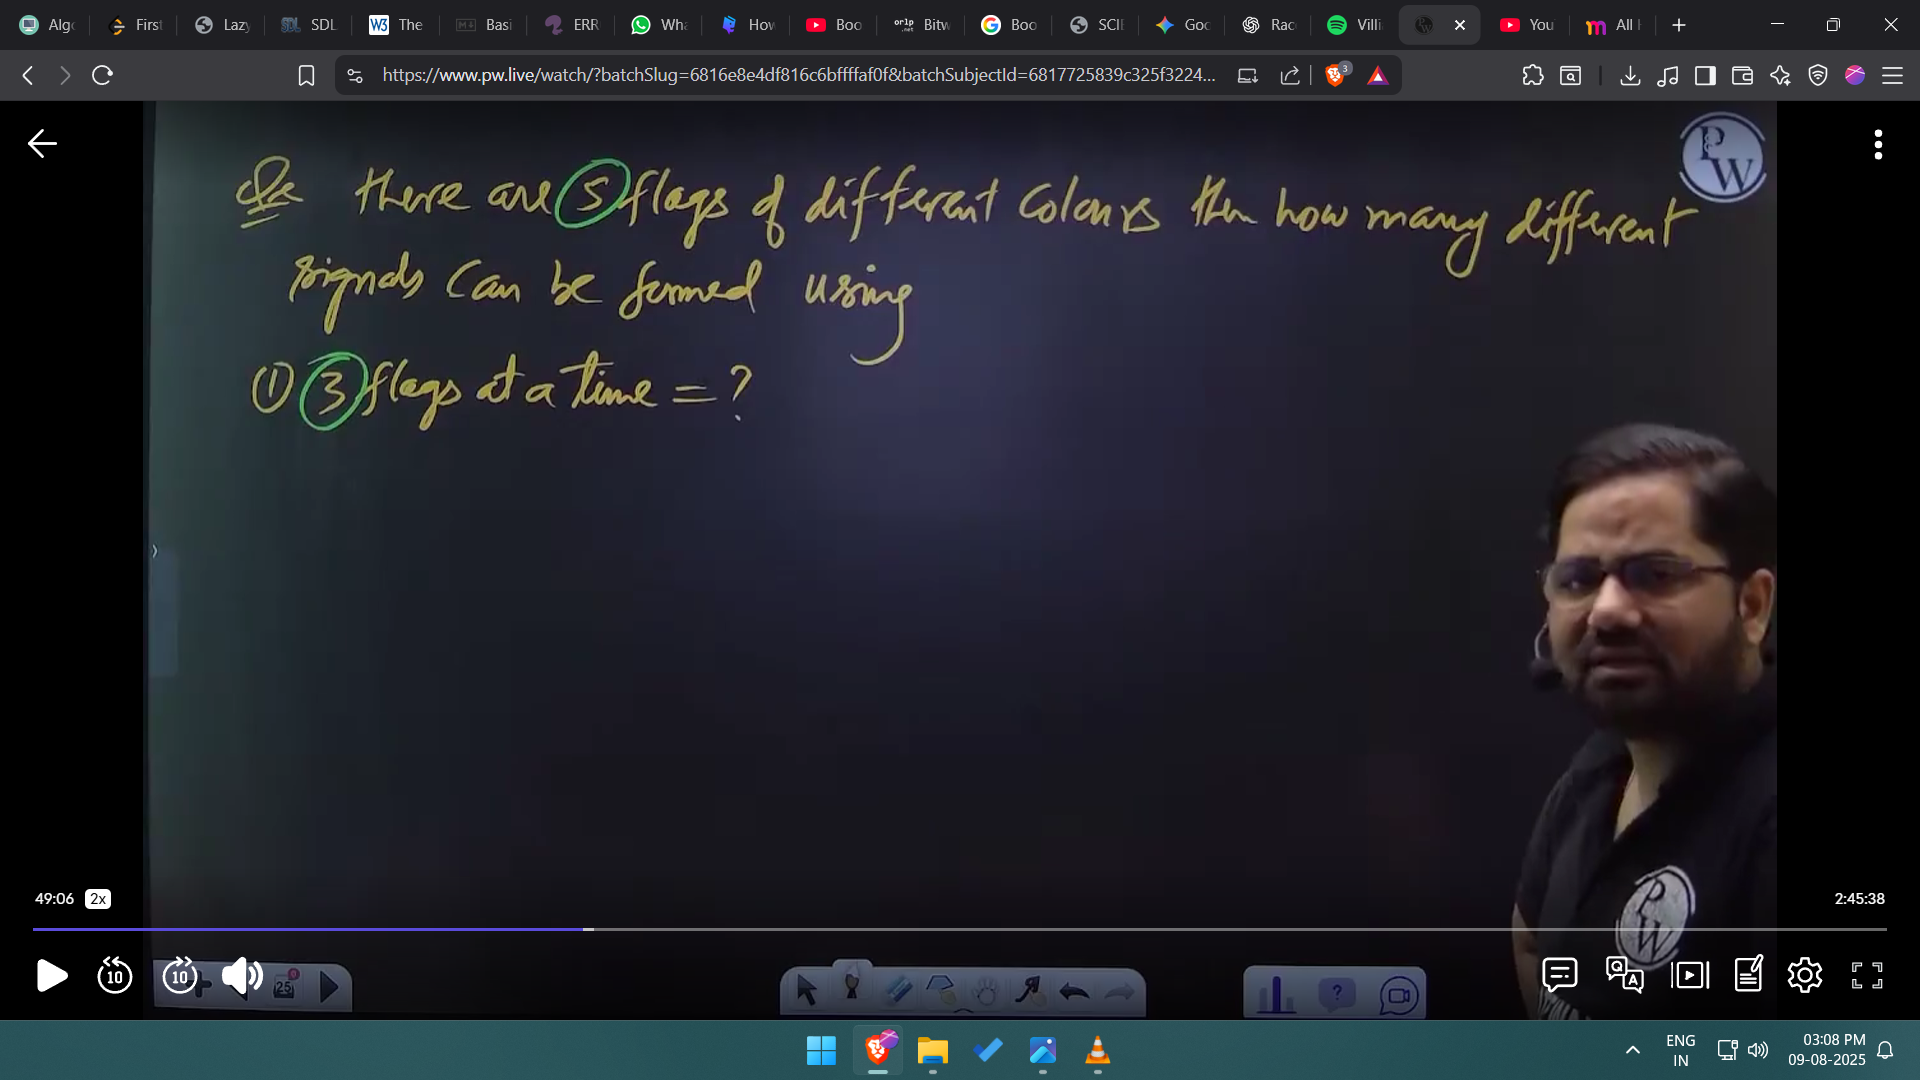 Algo
First
Lazy
SDL
W3 The
Basi
ERR
Wha
How
Boo
orlp .net Bitw
Boo
SCIE
Goo
Rac
Villi
You
All
https://www.pw.live/watch/?batchSlug=6816e8e4df816c6bffffaf0f&batchSubjectId=6817725839c325f3224...
3
PW
Qs there are 5 flags of different colours then how many different
signals can be formed using
① 3 flags at a time = ?
49:06 2x
2:45:38
PW
10
10
25
0
?
Q A
ENG
IN
03:08 PM
09-08-2025